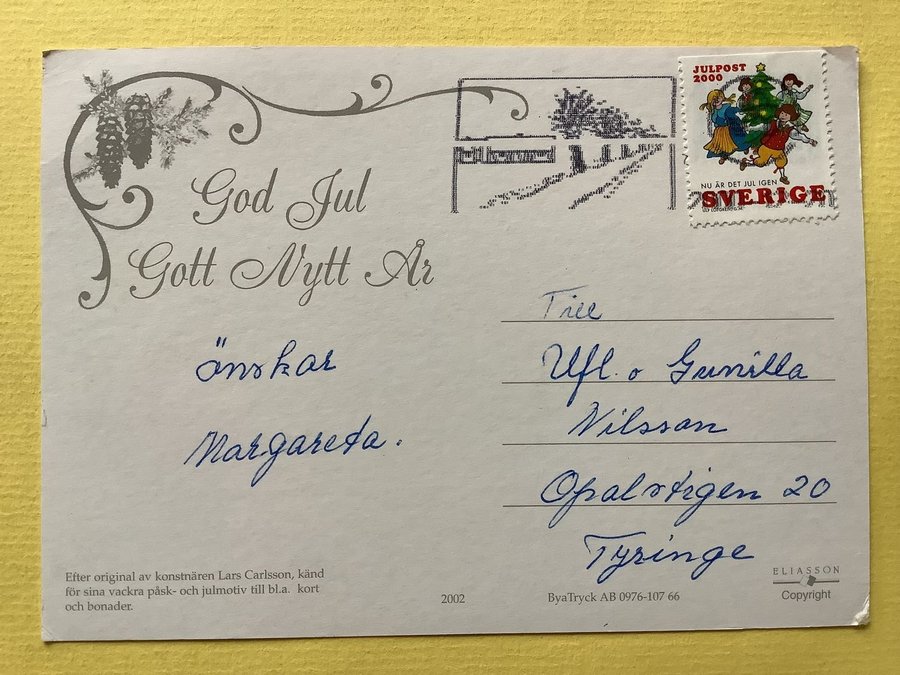 JULPOST
2000
NU ÄR DET JUL IGEN
SVERIGE
God Jul
Gott Nytt År
önskar
Margareta.
Till
Ulf o Gunilla
Nilsson
Opalstigen 20
Tyringe
Efter original av konstnären Lars Carlsson, känd
för sina vackra påsk- och julmotiv till bl.a. kort
och bonader.
2002
ByaTryck AB 0976-107 66
ELIASSON
Copyright